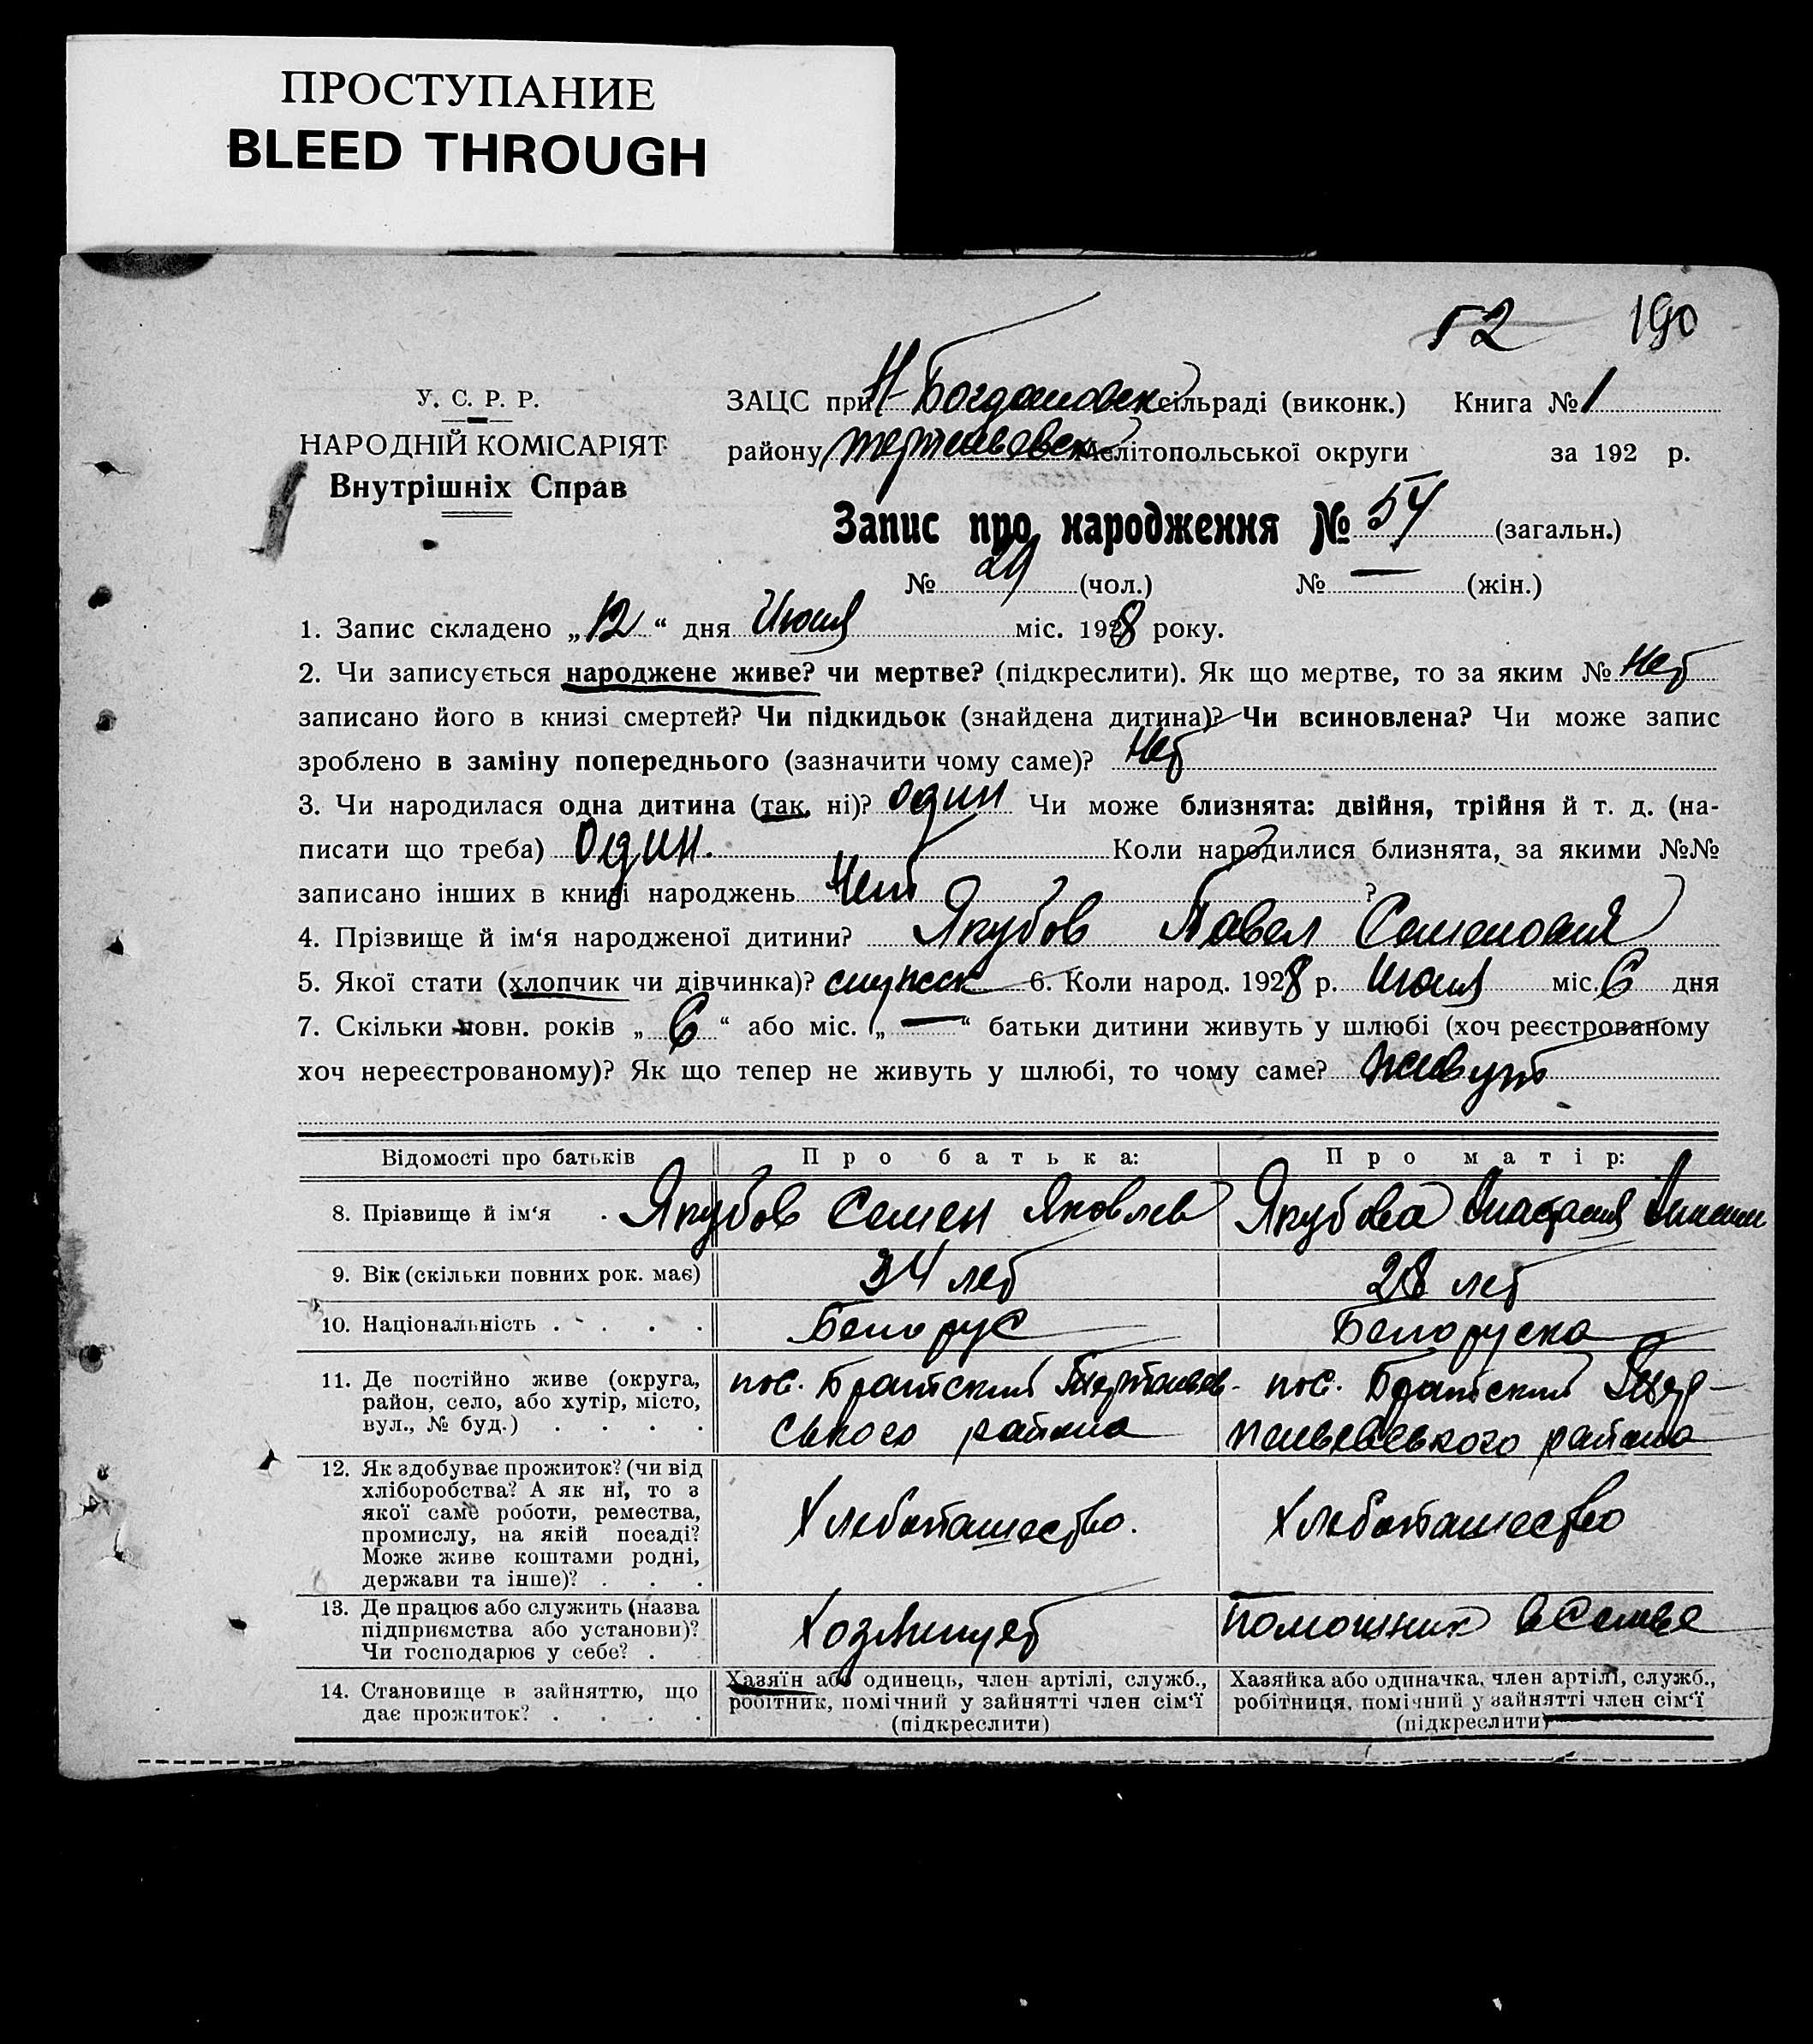 ПРОСТУПАНИЕ
BLEED THROUGH
52 190
У. С. Р. Р.
НАРОДНІЙ КОМІСАРІЯТ
Внутрішніх Справ
ЗАЦС при Н-Богдановск сільраді (виконк.) Книга № 1
району Мелітопольської округи за 192 р.
Запис про народження № 54 (загальн.)
№ 29 (чол.) № — (жін.)
1. Запис складено „12“ дня Июня міс. 1928 року.
2. Чи записується народжене живе? чи мертве? (підкреслити). Як що мертве, то за яким № Нет
записано його в книзі смертей? Чи підкидьок (знайдена дитина)? Чи всиновлена? Чи може запис
зроблено в заміну попереднього (зазначити чому саме)? Нет
3. Чи народилася одна дитина (так, ні)? один Чи може близнята: двійня, трійня й т. д. (на-
писати що треба) Один. Коли народилися близнята, за якими №№
записано інших в книзі народжень Нет ?
4. Прізвище й ім‘я народженої дитини? Якубов Павел Семенович
5. Якої стати (хлопчик чи дівчинка)? мужск 6. Коли народ. 1928 р. Июня міс. 6 дня
7. Скільки повн. років „6“ або міс. „—“ батьки дитини живуть у шлюбі (хоч реєстрованому
хоч нереєстрованому)? Як що тепер не живуть у шлюбі, то чому саме? живут
Відомості про батьків Про батька: Про матір:
8. Прізвище й ім‘я . Якубов Семен Яковлев Якубова Анастасия
9. Вік (скільки повних рок. має) 34 лет 28 лет
10. Національність . . . . . Белорус Белоруска
11. Де постійно живе (округа,
район, село, або хутір, місто,
вул., № буд.) . . . .
пос. Братский
ського района
пос. Братский
района
12. Як здобуває прожиток? (чи від
хліборобства? А як ні, то з
якої саме роботи, ремества,
промислу, на якій посаді?
Може живе коштами родні,
держави та інше)? . . .
Хлебопашество.
Хлебопашество
13. Де працює або служить (назва
підприємства або установи)?
Чи господарює у себе? .
Хозяинует
помошник в Семье
14. Становище в зайняттю, що
дає прожиток? . . . .
Хазяїн або одинець, член артілі, служб.,
робітник, помічний у зайнятті член сім‘ї
(підкреслити)
Хазяйка або одиначка, член артілі, служб.,
робітниця, помічний у зайнятті член сім‘ї
(підкреслити)